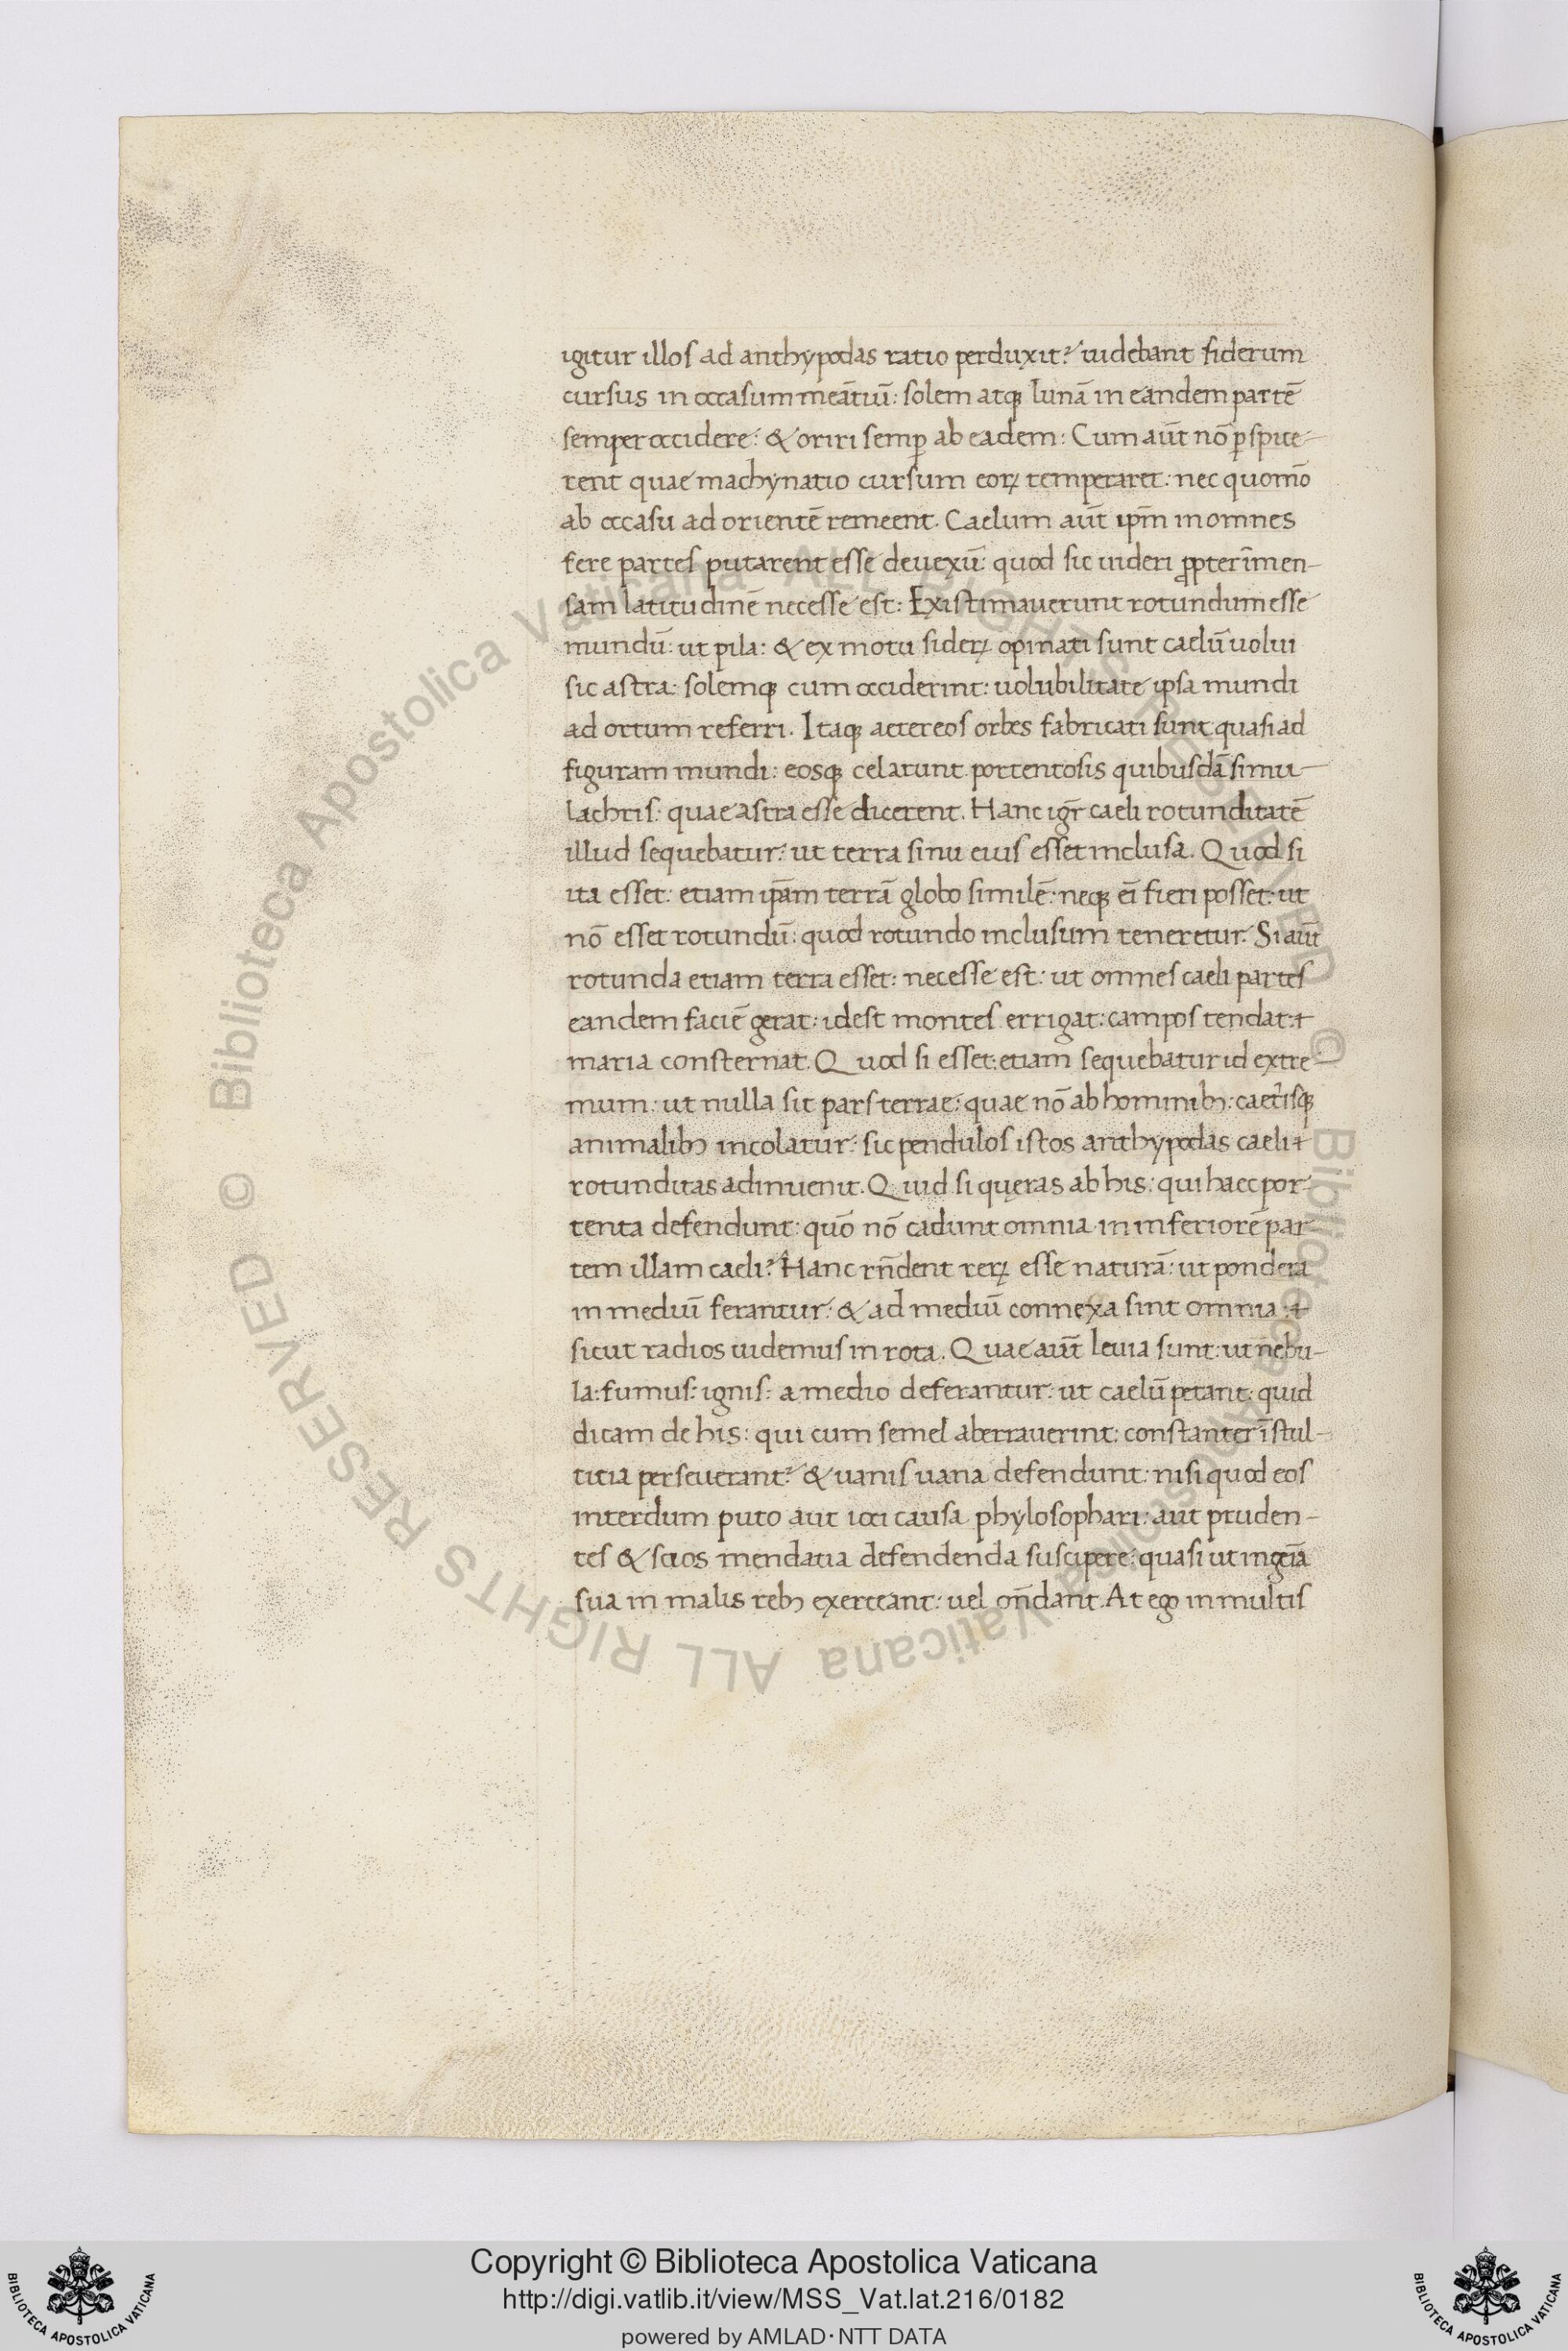 igitur illos ad anthypodas ratio perduxit? uidebant siderum
cursus in occasum meātiū: solem atq; lunā in eandem partē
semper occidere: & oriri semp̱ ab eadem: Cum aūt nō ꝑspice-
rent quae machynatio cursum eoꝝ temperaret: nec quomō
ab occasu ad orientē remeent. Caelum aūt ip̄m in omnes
fere partes putarent esse deuexū: quod sic uideri ꝓpter īmen-
sam latitudinē necesse est: Existimauerunt rotundum esse
mundū: ut pila: & ex motu sideꝝ opinati sunt caelū uolui
sic astra: solemq; cum occiderint: uolubilitate ipsa mundi
ad ortum referri. Itaq; aereos orbes fabricati sunt quasi ad
figuram mundi: eosq; celarunt portentosis quibusdā simu-
lachris: quae astra esse dicerent. Hanc igr̄ caeli rotunditatē
illud sequebatur: ut terra sinu eius esset inclusa. Quod si
ita esset: etiam ip̄am terrā globo similē: neq; eī fieri posset: ut
nō esset rotundū: quod rotundo inclusum teneretur. Si aūt
rotunda etiam terra esset: necesse est: ut omnes caeli partes
eandem faciē gerat: idest montes errigat: campos tendat: +
maria consternat. Quod si esset: etiam sequebatur id extre-
mum: ut nulla sit pars terrae: quae nō ab hominib;: caeterisq;
animalib; incolatur: sic pendulos istos anthypodas caeli +
rotunditas adinuenit. Quid si quęras ab his: qui haec por-
tenta defendunt: quō nō cadunt omnia in inferiorē par-
tem illam caeli? Hanc rn̄dent reꝝ esse naturā: ut pondera
in mediū ferantur: & ad mediū connexa sint omnia: +
sicut radios uidemus in rota. Quae aūt leuia sunt: ut nebu-
la: fumus: ignis: a medio deferantur: ut caelū petant: quid
dicam de his: qui cum semel aberrauerint: constanter ī stul-
titia perseuerant? & uanis uana defendunt: nisi quod eos
interdum puto aut ioci causa phylosophari: aut pruden-
tes & scios mendatia defendenda suscipere: quasi ut ingeīa
sua in malis reb; exerceant: uel on̄dant. At ego in multis
Copyright © Biblioteca Apostolica Vaticana
http://digi.vatlib.it/view/MSS_Vat.lat.216/0182
powered by AMLAD·NTT DATA
© Biblioteca Apostolica Vaticana ALL RIGHTS RESERVED
© Biblioteca Apostolica Vaticana ALL RIGHTS RESERVED
BIBLIOTECA APOSTOLICA VATICANA
BIBLIOTECA APOSTOLICA VATICANA